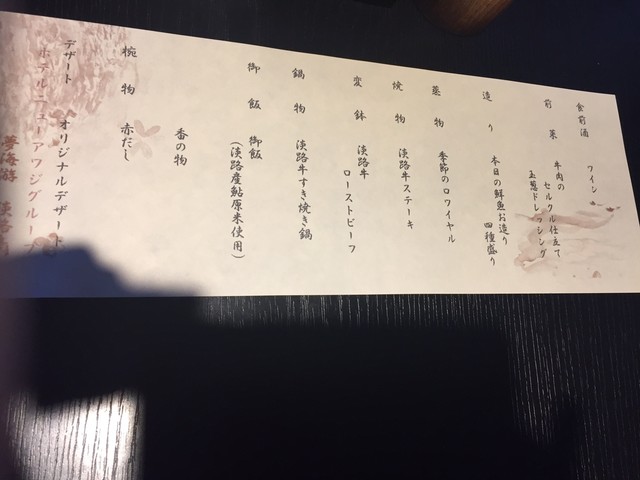 食前酒 ワイン
前菜 牛肉の
セルクル仕立て
玉葱ドレッシング
造り 本日の鮮魚お造り
四種盛り
蒸物 季節のロワイヤル
焼物 淡路牛ステーキ
変鉢 淡路牛
ローストビーフ
鍋物 淡路牛すき焼き鍋
御飯 御飯
(淡路産鮎原米使用)
香の物
椀物 赤だし
デザート オリジナルデザート
ホテルニューアワジグループ
夢海游 淡路島